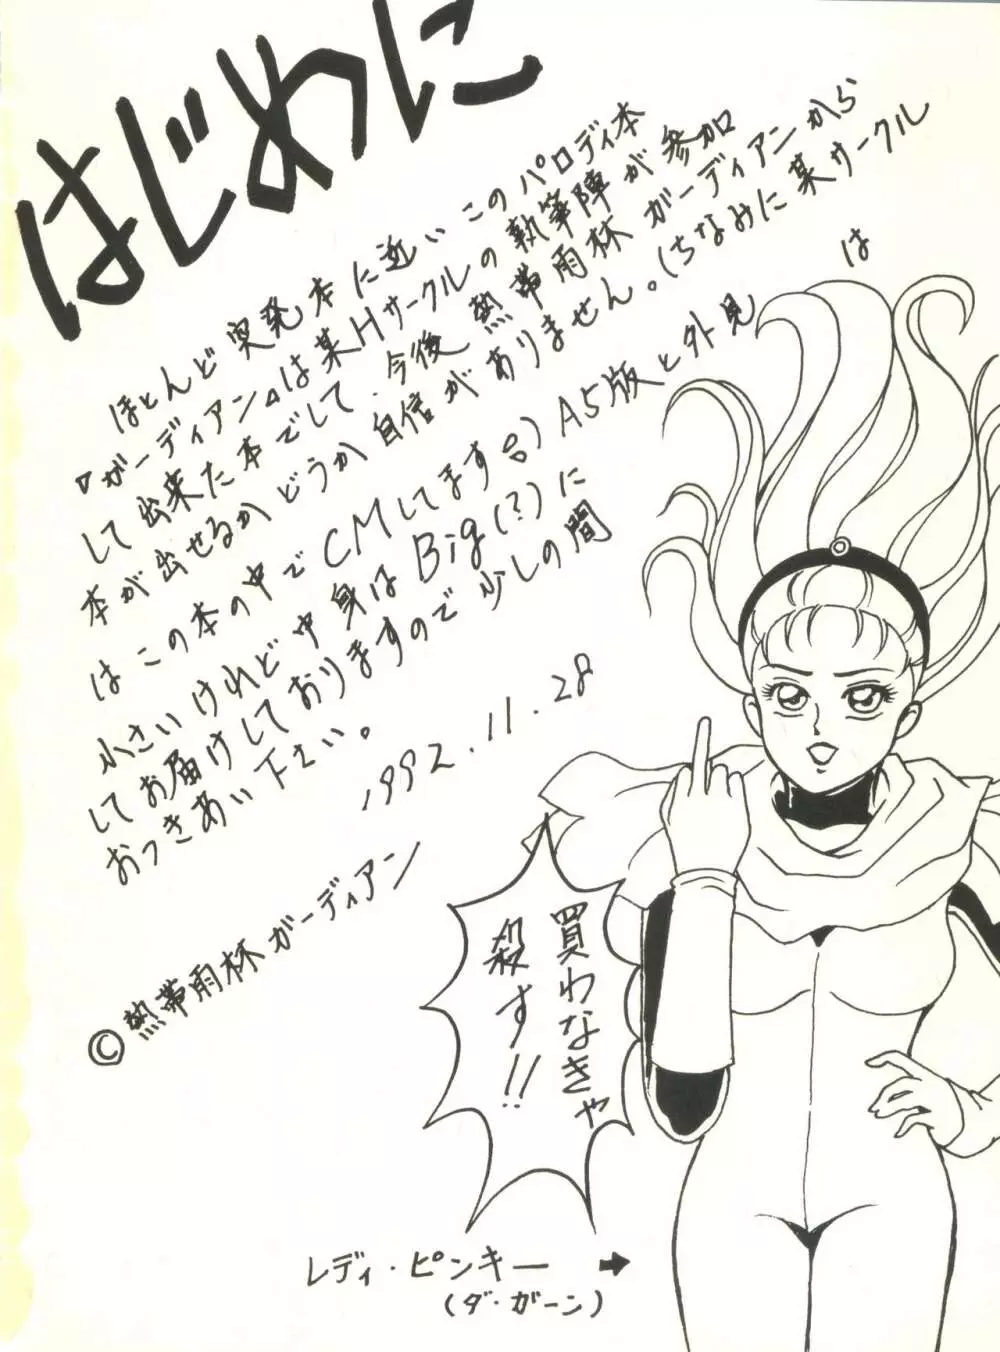 はじめに
ほとんど突発本に近いこのパロディ本
『ガーディアン』は某Hサークルの執筆陣が参加
して出来た本でして、今後熱帯雨林ガーディアンから
本が出せるかどうか自信がありません。(ちなみに某サークル
はこの本の中でCMしてます㊤)A5版と外見は
小さいけれど中身はBig(?)に
してお届けしておりますので少しの間
おつきあい下さい。
1992.11.28
©熱帯雨林ガーディアン
買わなきゃ
殺す!!
レディ・ピンキー→
(ダ・ガーン)